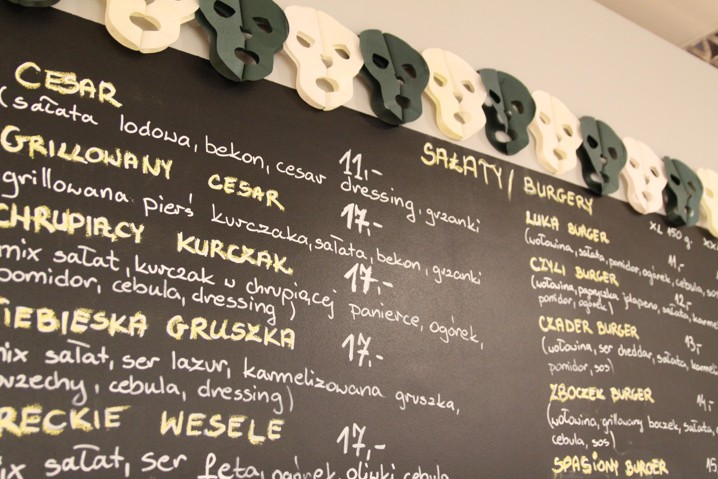 SAŁATY/BURGERY
CESAR
(sałata lodowa, bekon, cesar dressing, grzanki
11,-
GRILLOWANY CESAR
grillowana pierś kurczaka, sałata, bekon, grzanki
17,-
CHRUPIĄCY KURCZAK
mix sałat, kurczak w chrupiącej panierce, ogórek,
pomidor, cebula, dressing)
17,-
IEBIESKA GRUSZKA
ix sałat, ser lazur, karmelizowana gruszka,
orzechy, cebula, dressing)
17,-
RECKIE WESELE
ix sałat, ser feta, ogórek, oliwki, cebula
17,-
XL 150 g.
LUKA BURGER
(wołowina, sałata, pomidor, ogórek, cebula, sos
11,-
CZYLI BURGER
(wołowina, papryczka jalapeno, sałata,
pomidor, ogórek)
12,-
CZADER BURGER
13,-
(wołowina, ser cheddar, sałata,
pomidor, sos)
ZBOCZEK BURGER
(wołowina, grillowany boczek, sałata,
cebula, sos)
SPASIONY BURGER